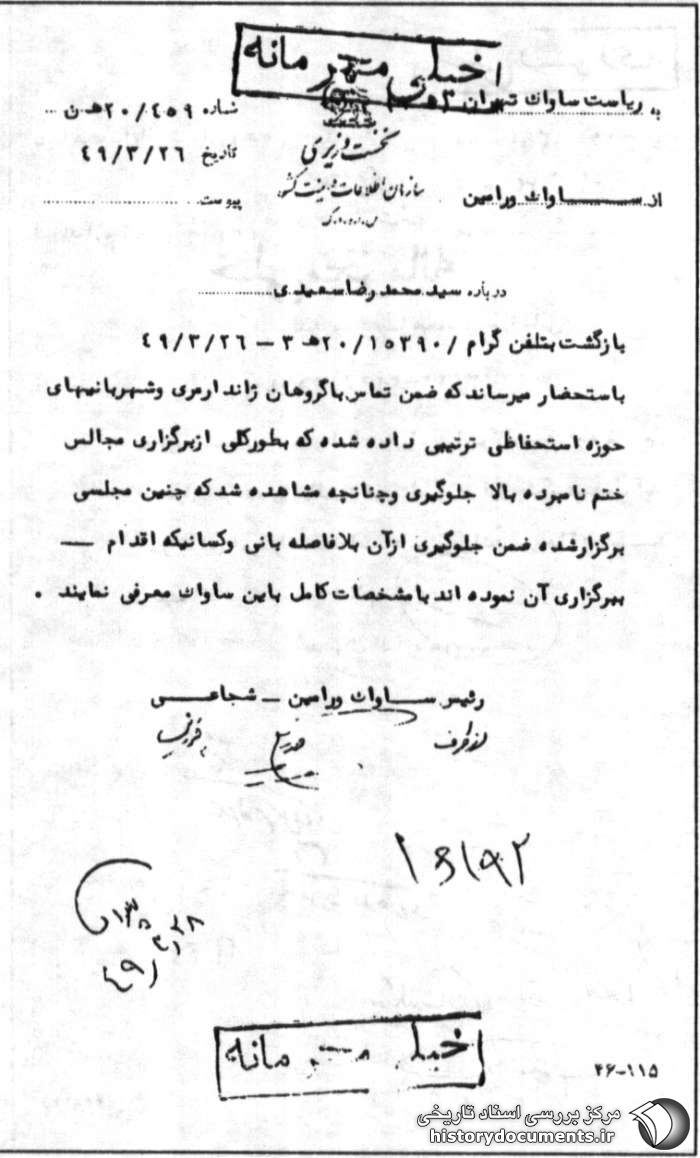 خیلی محرمانه
به ریاست ساواک تهران ۳ ه‍
شماره ۲۰/٤٥۹ ه‍ ن
نخست وزیری
تاریخ ٤۹/۳/۲٦
سازمان اطلاعات و امنیت کشور
از ســاواک ورامین
پیوست
س.ا.و.ا.ک
درباره سید محمد رضا سعیدی
بازگشت بتلفن گرام /۲۰/۱٥۳۹۰ه‍ ۳ – ٤۹/۳/۲٦
باستحضار میرساند که ضمن تماس باگروهان ژاندارمری وشهربانیهای
حوزه استحفاظی ترتیبی داده شده که بطورکلی ازبرگزاری مجالس
ختم نامبرده بالا جلوگیری وچنانچه مشاهده شدکه چنین مجلسی
برگزارشده ضمن جلوگیری ازآن بلافاصله بانی وکسانیکه اقدام —
ببرگزاری آن نموده اند بامشخصات کامل باین ساواک معرفی نمایند .
رئیس ســاواک ورامین – شجاعــی
از طرف
٤۹/۳/۲۸
خیلی محرمانه
۴۶-۱۱۵
مرکز بررسی اسناد تاریخی
historydocuments.ir